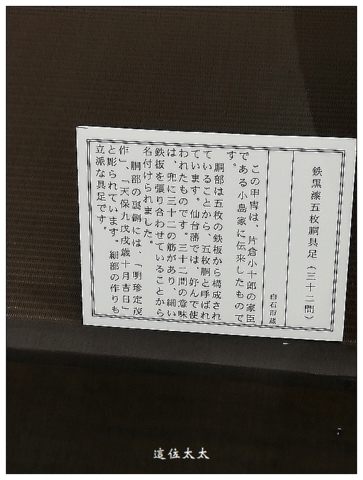 鉄黒漆五枚胴具足（三十二間）
白石市蔵
この甲冑は、片倉小十郎の家臣
である小島家に伝来したもので
す。
胴部は五枚の鉄板から構成され
ていることから、五枚胴と呼ばれ
ています。仙台藩では、好んで使
われたものです。三十二間の意味
は、兜に三十二の筋があり、細い
鉄板を張り合わせていることから
名付けられました。
胴部の裏側には、「明珍定茂
作」、「天保九戊戌歳十月吉日」
と彫られています。細部の作りも
立派な具足です。
遠佐太太